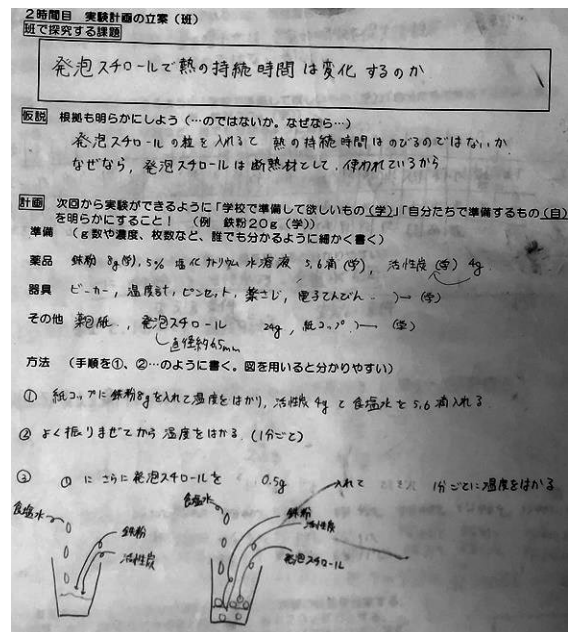 2時間目 実験計画の立案(班)
班で探究する課題
発泡スチロールで熱の持続時間は変化するのか
仮説 根拠も明らかにしよう(…のではないか。なぜなら…)
発泡スチロールの粒を入れると 熱の持続時間はのびるのではないか
なぜなら,発泡スチロールは断熱材として、使われているから
計画 次回から実験ができるように「学校で準備して欲しいもの(学)」「自分たちで準備するもの(自)
を明らかにすること! (例 鉄粉20g(学))
準備 (g数や濃度、枚数など、誰でも分かるように細かく書く)
薬品 鉄粉 8g(学), 5% 塩化ナトリウム水溶液 5,6滴(学), 活性炭(学) 4g
器具 ビーカー, 温度計, ピンセット, 薬さじ, 電子てんびん → (学)
その他 薬包紙, 発泡スチロール 24g, 紙コップ → (学)
直径約6.5mm
方法 (手順を①、②…のように書く。図を用いると分かりやすい)
① 紙コップに鉄粉8gを入れて温度をはかり, 活性炭4gと食塩水を5,6滴入れる
② よく振りまぜてから温度をはかる (1分ごと)
③ ①にさらに発泡スチロールを 0.5g 入れて 1分ごとに温度をはかる
食塩水
鉄粉
活性炭
食塩水
鉄粉
活性炭
発泡スチロール